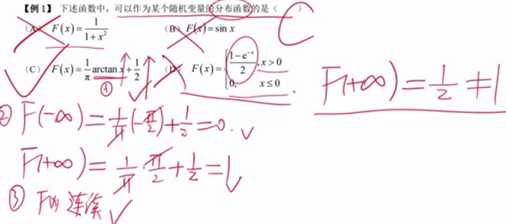 【例1】 下述函数中，可以作为某个随机变量的分布函数的是（ C ）
（A） F(x)=1/(1+x²) （B） F(x)=sin x
（C） F(x)=1/π arctan x+1/2 （D） F(x)={(1-e^{-x})/2, x>0
0, x≤0
①
F(+∞)=1/2≠1
② F(-∞)=1/π·(-π/2)+1/2=0. ✓
F(+∞)=1/π·π/2+1/2=1 ✓
③ F(x) 连续 ✓